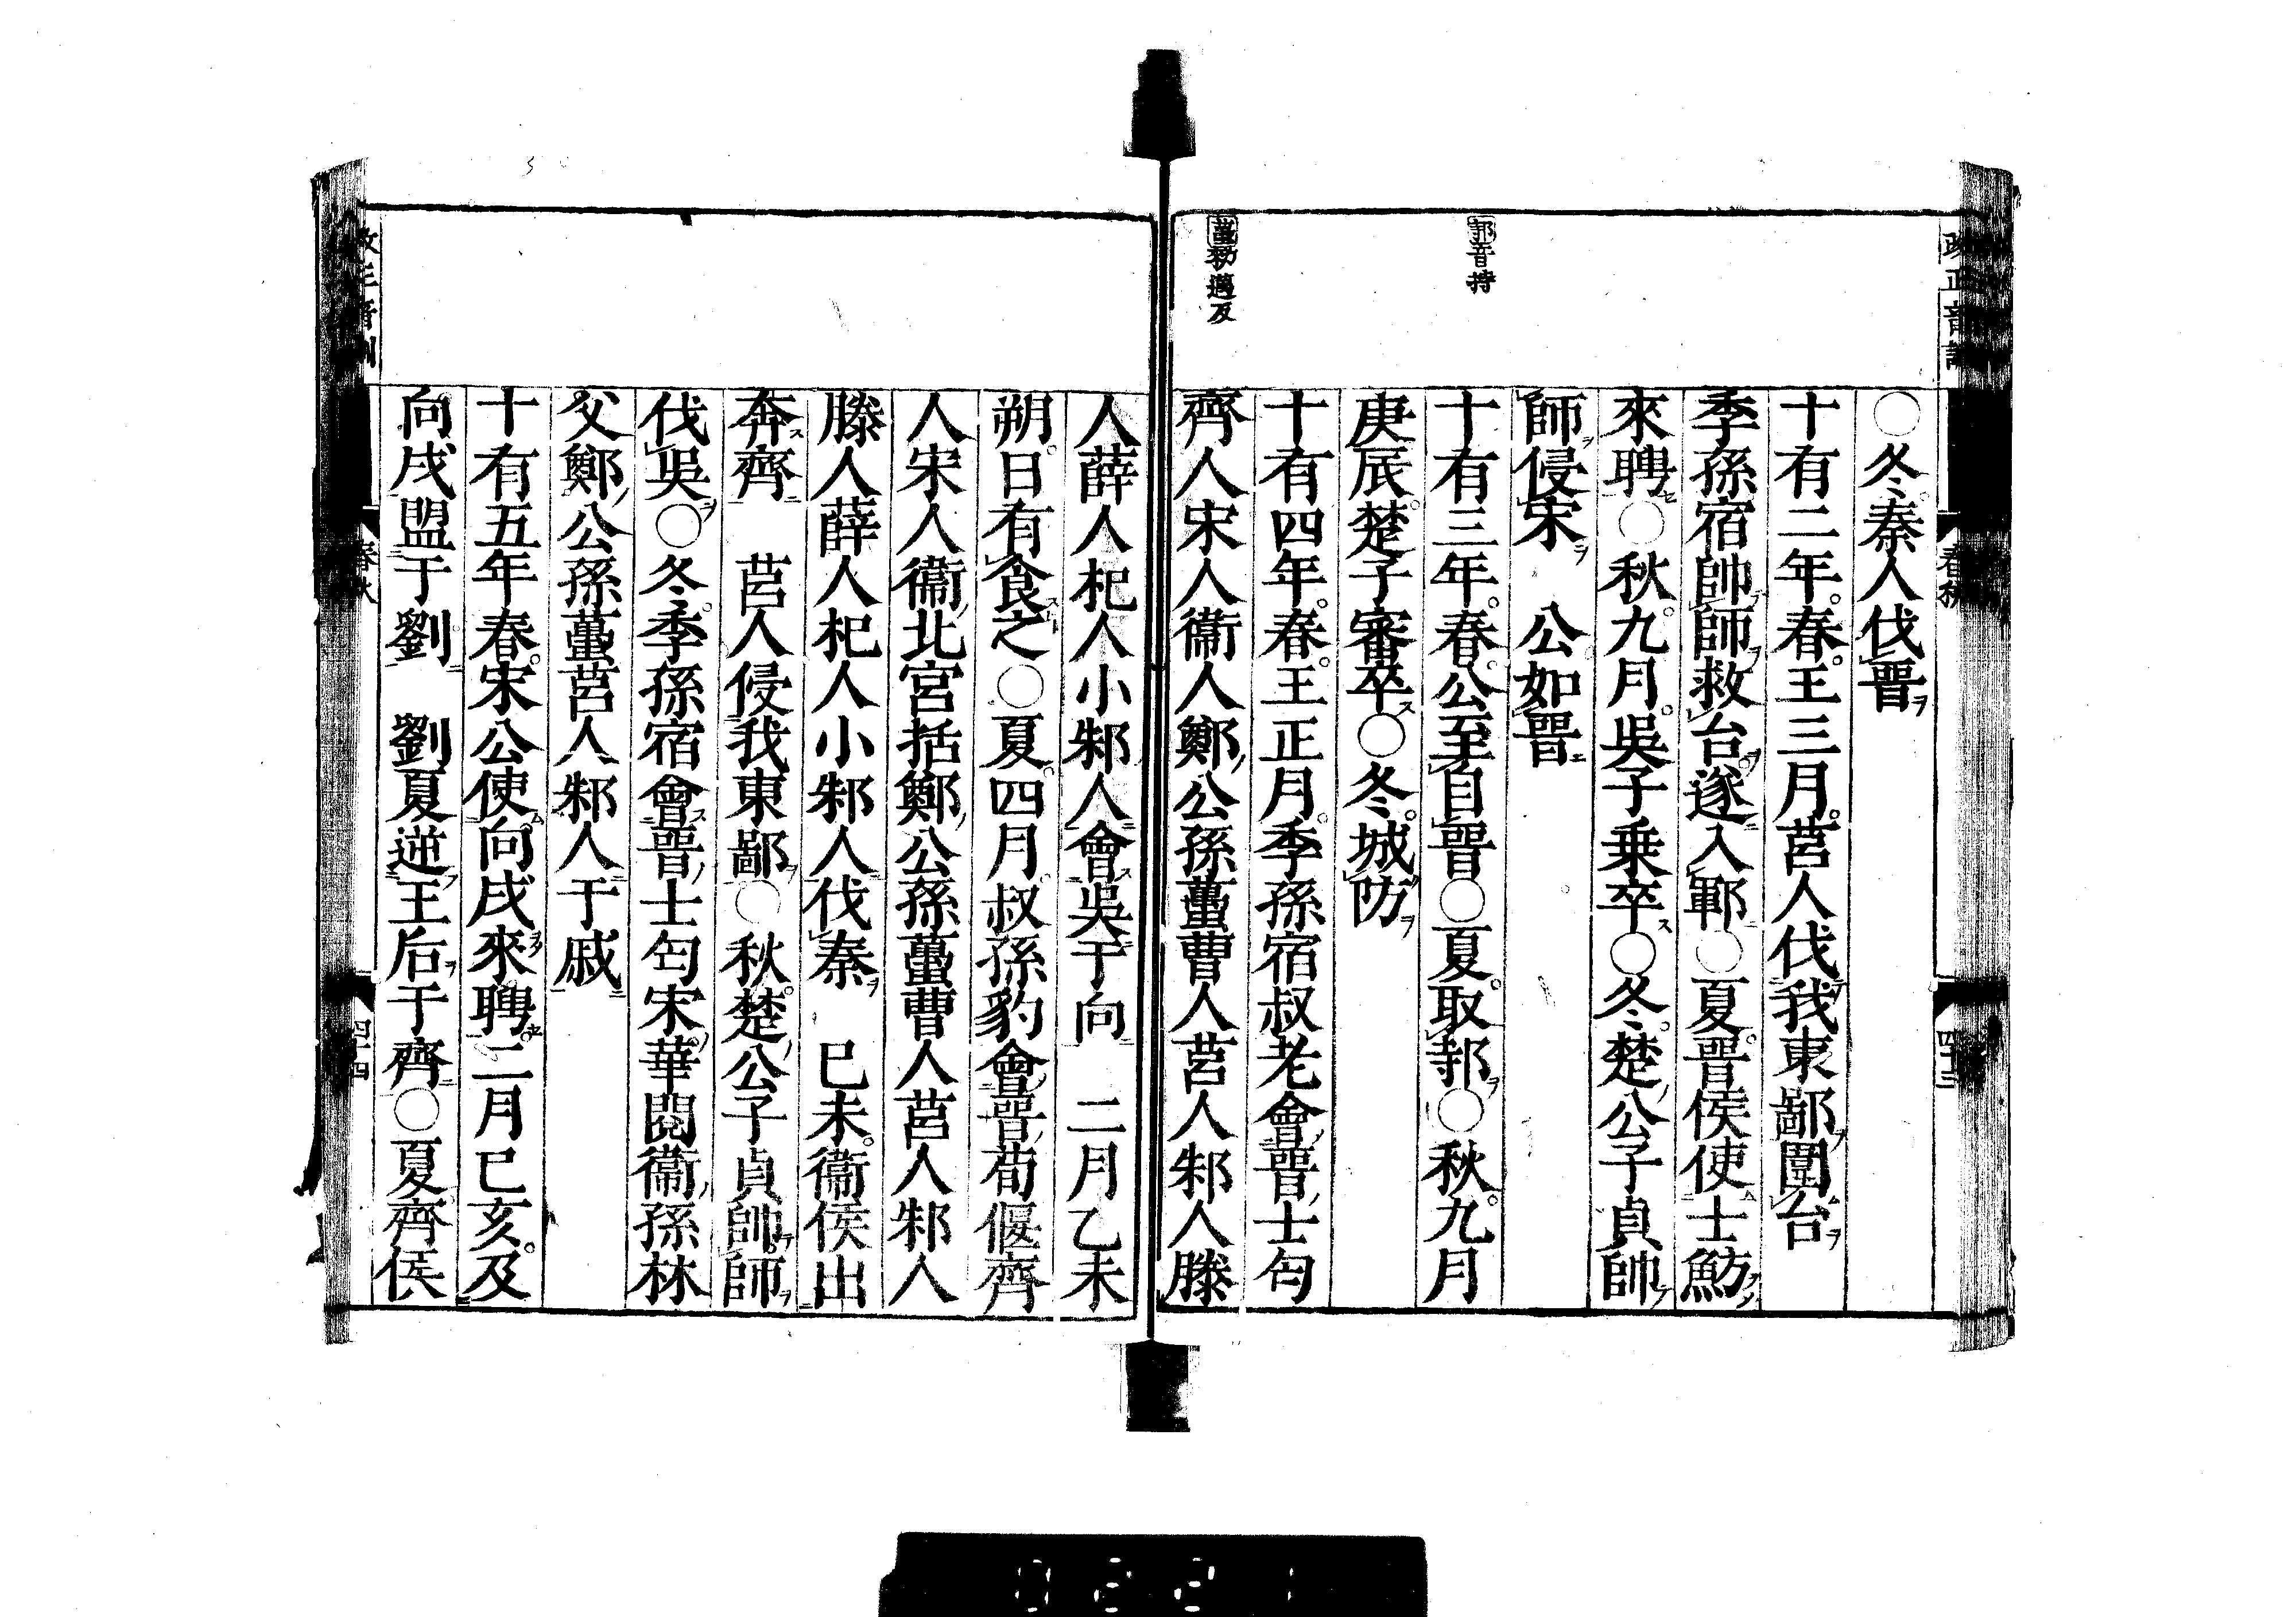 邿音持
蠆勑邁反
○冬秦人伐晉ヲ
十有二年春王三月莒人伐我東鄙ヲ圍台ヲ
季孫宿帥師ヲ救台ヲ遂入鄆ニ○夏晉侯使士魴
來聘セ○秋九月吳子乗卒ス○冬楚ノ公子貞帥
師ヲ侵宋ヲ　公如晉ニ
十有三年春公至自晉○夏取邿ヲ○秋九月
庚辰楚子審卒ス○冬城防ヲ
十有四年春王正月季孫宿叔老會晉ノ士匄
齊人宋人衞人鄭ノ公孫蠆曹人莒人邾人滕
人薛人杞人小邾人會ス吳于向ニ　二月乙未
朔日有食之○夏四月叔孫豹會晉ノ荀偃齊
人宋人衞ノ北宮括鄭ノ公孫蠆曹人莒人邾人
滕人薛人杞人小邾人伐秦ヲ　已未衞侯出
奔ス齊ニ　莒人侵我東鄙ヲ○秋楚ノ公子貞帥師ヲ
伐吳ヲ○冬季孫宿會ス晉ノ士匄宋ノ華閱衞ノ孫林
父鄭ノ公孫蠆莒人邾人于戚ニ
十有五年春宋公使向戌來聘二月已亥及
向戌盟于劉ニ　劉夏逆王后ヲ于齊ニ○夏齊侯
春秋
四十三
春秋
四十四
0221